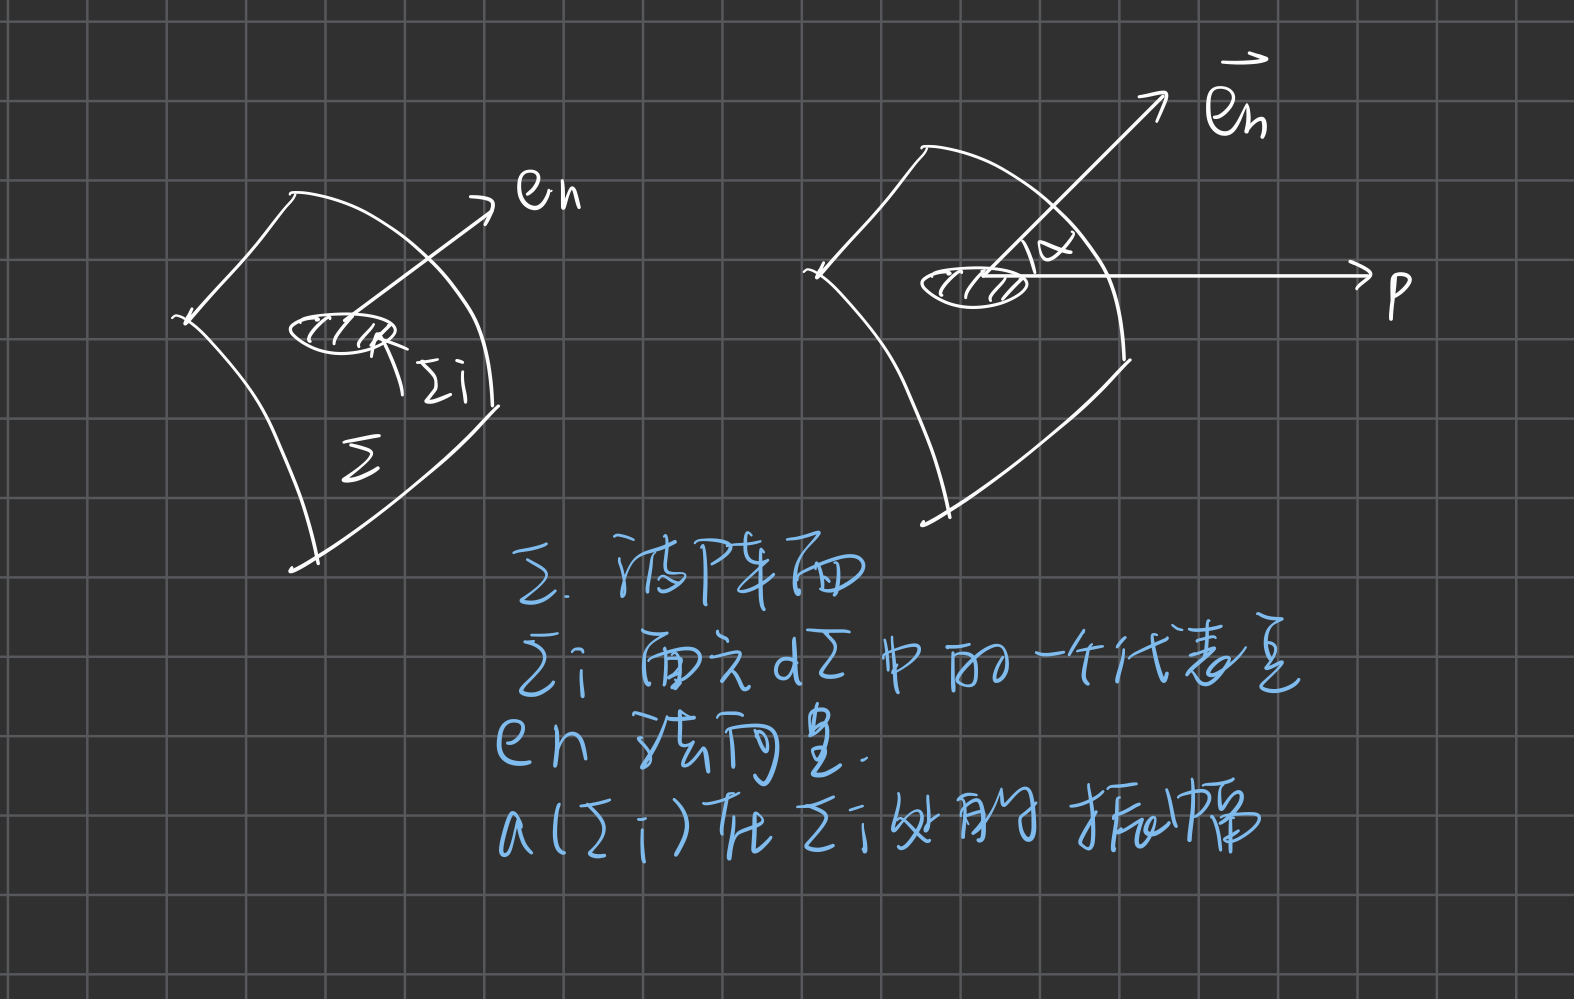 en
Σi
Σ
en
α
p
Σ. 波阵面
Σi 面元 dΣ 中的一个代表点
en 法向量.
a(Σi) 在 Σi 处的 振幅